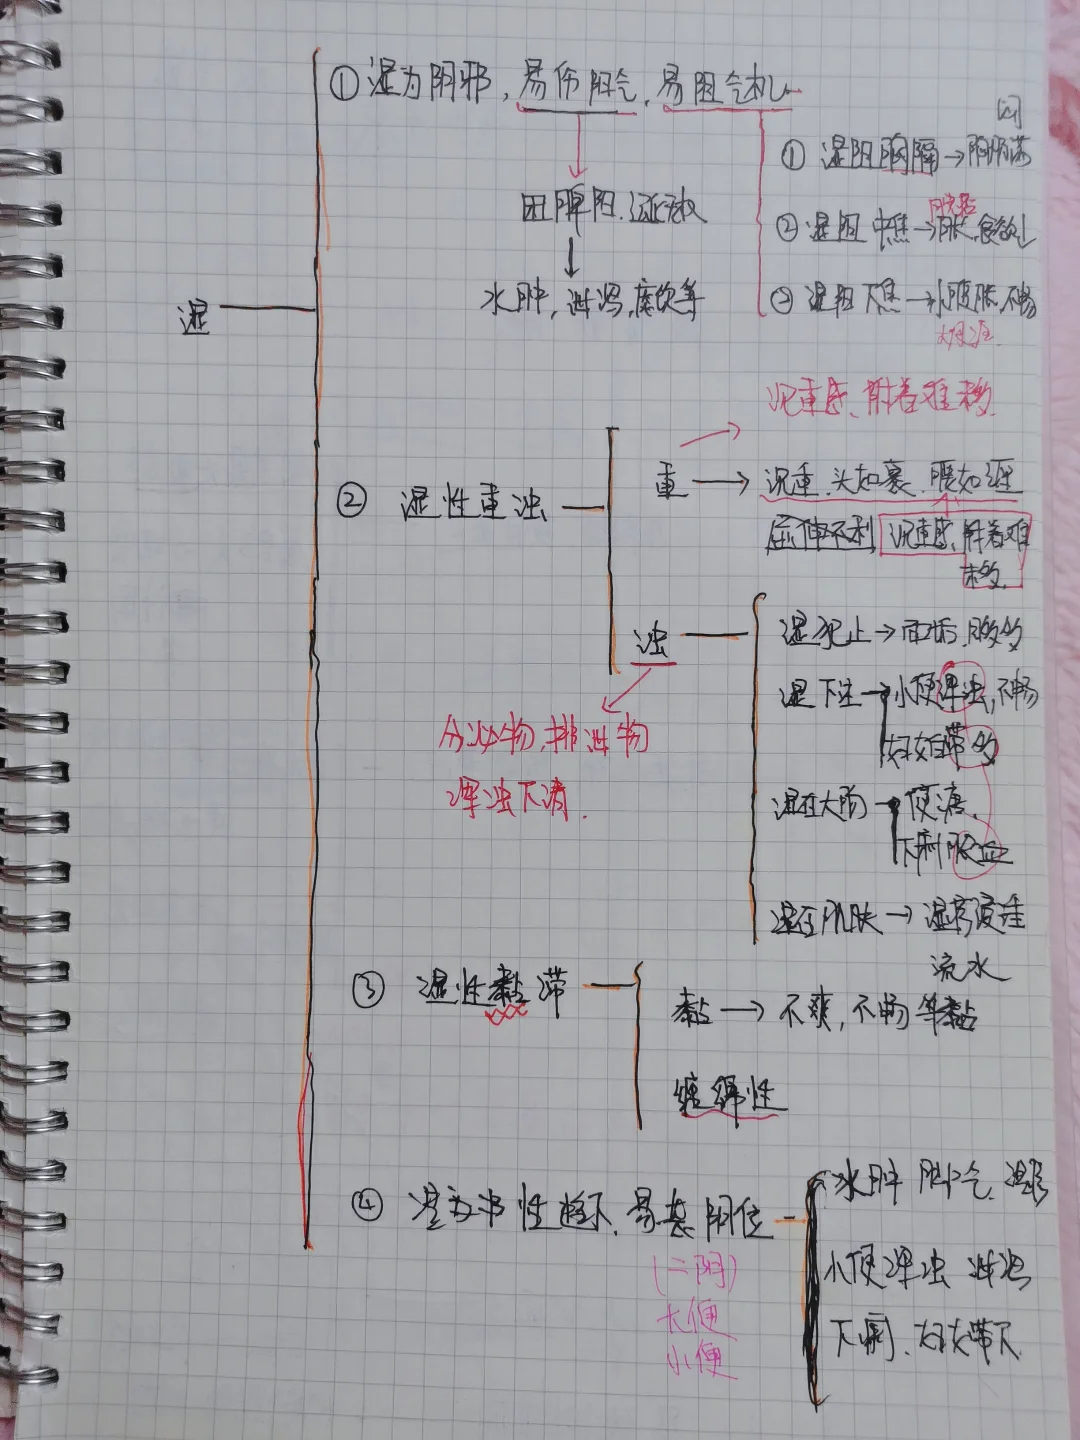 湿
① 湿为阴邪，易伤阳气，易阻气机
困脾阳.运化无权
水肿，泄泻，痰饮等
闷
① 湿阻胸膈→胸满
② 湿阻中焦→脘胀,食欲↓
脘痞
③ 湿阻下焦→小腹胀,不畅
② 湿性重浊
沉重感、附着难移
重→沉重、头如裹、腰如缠
屈伸不利 沉重感、附着难
移
浊
分泌物、排泄物
浑浊不清.
湿犯上→面垢,眵多
湿下注→小便浑浊,不畅
妇女白带多
湿在大肠→便溏、
下利脓血
湿在肌肤→湿疹浸淫
流水
③ 湿性黏滞
黏→不爽,不畅等黏
缠绵性
④ 湿为 性趋下、易袭阴位
(二阴)
大便
小便
水肿 脚气、湿疹
小便浑浊 泄泻
下痢、妇女带下